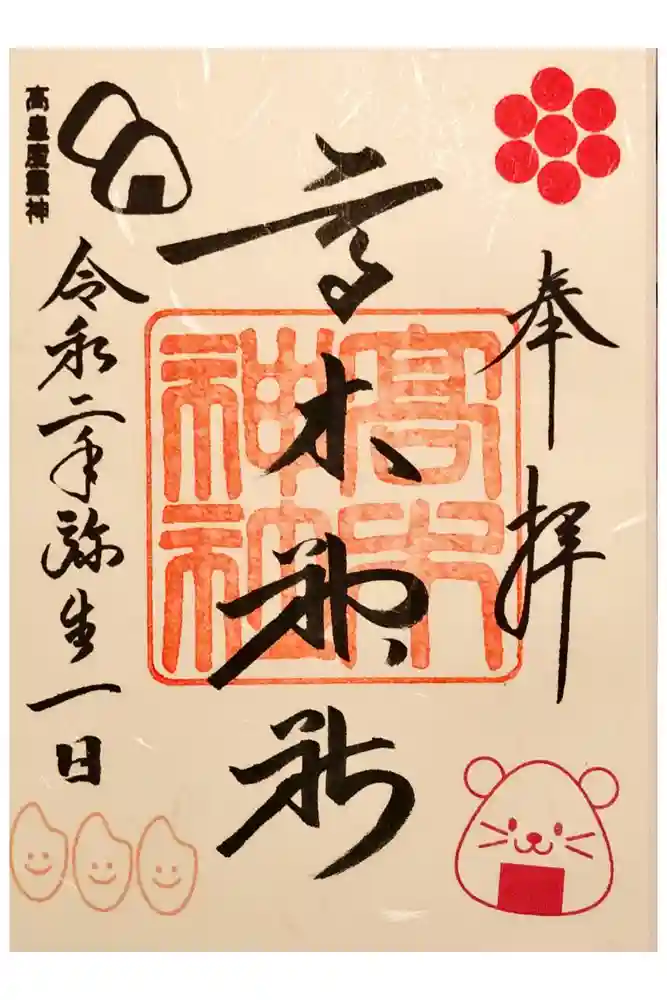 奉拝
高木神社
高木
神社
高皇産霊神
令和二年弥生一日